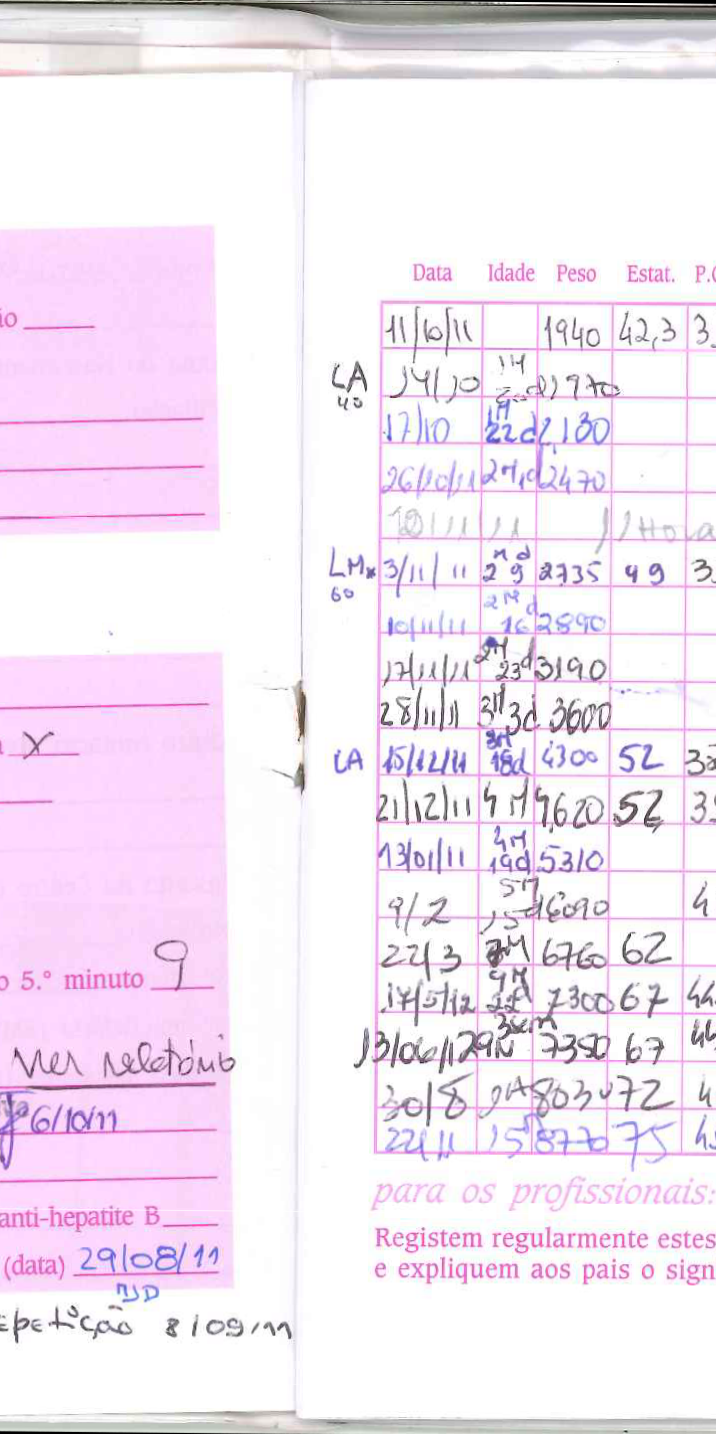 io
X
o 5.º minuto 9
Ver relatório
6/10/11
anti-hepatite B
(data) 29/08/11
epetição 8/09/11
Data Idade Peso Estat. P.C
11/10/11 1940 42,3 3
LA 14/10 1M 1970
40
17/10 1M 22d 2,130
26/10/11 2M 1d 2470
11 Hora
LM* 3/11/11 2M 9d 2735 49 3
60
10/11/11 2M 16d 2890
17/11/11 2M 23d 3190
28/11/11 3M 3d 3600
LA 15/12/11 3M 18d 4300 52 3
21/12/11 4M 4,620 52 3
13/01/11 4M 19d 5310
9/2 5M 15d 6090 4
22/3 7M 6760 62
17/5/12 9M 22d 7300 67 44
13/06/12 7350 67 44
30/8 1A 803 72 4
22/11 15M 8770 75 4
para os profissionais:
Registem regularmente estes
e expliquem aos pais o sign